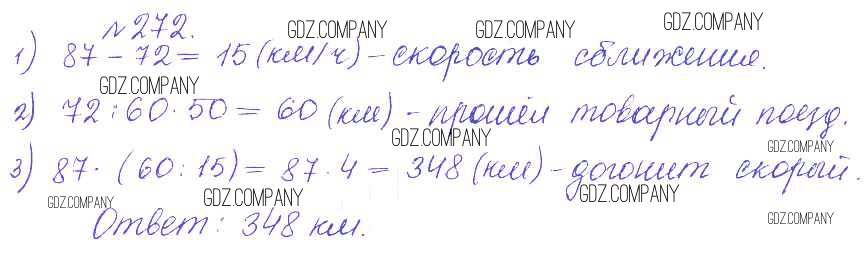 №272.
GDZ.COMPANY GDZ.COMPANY GDZ.COMPANY
1) 87 - 72 = 15 (км/ч) - скорость сближения.
GDZ.COMPANY
2) 72 : 60 · 50 = 60 (км) - прошёл товарный поезд.
GDZ.COMPANY GDZ.COMPANY
3) 87 · (60 : 15) = 87 · 4 = 348 (км) - догонит скорый.
GDZ.COMPANY GDZ.COMPANY GDZ.COMPANY
Ответ: 348 км.
GDZ.COMPANY